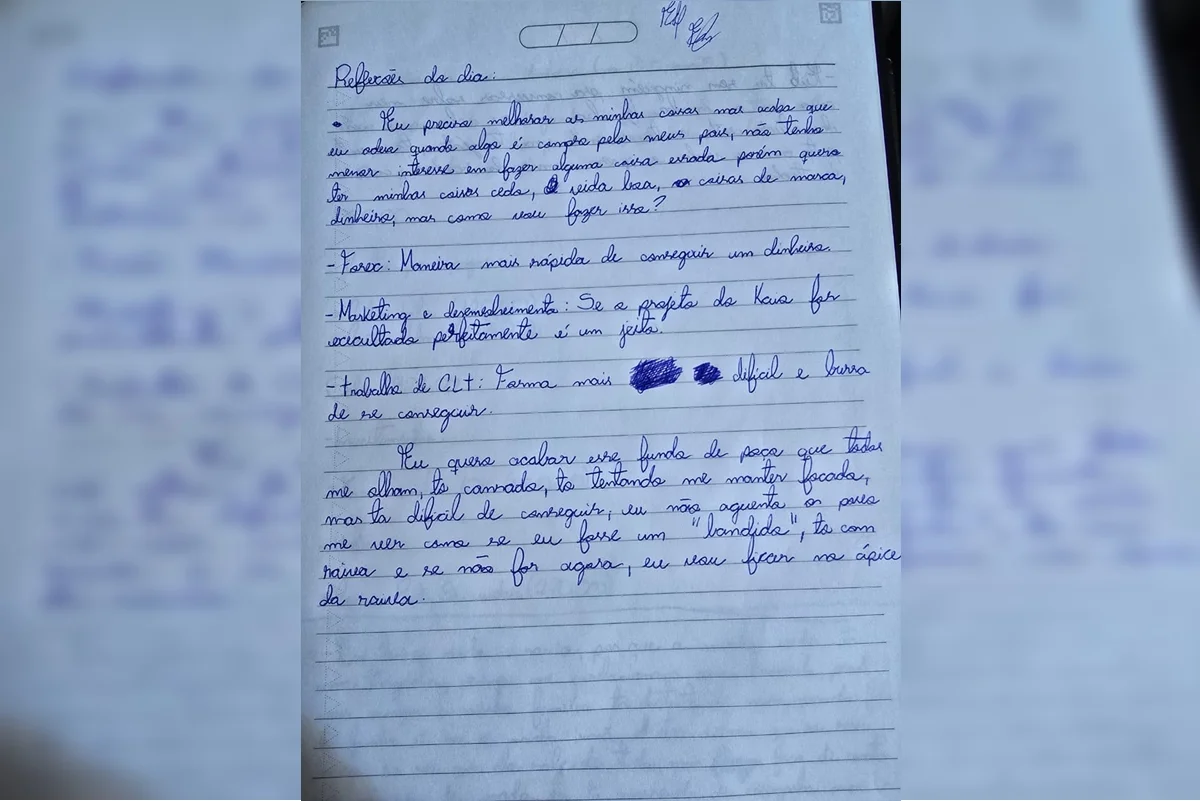 Reflexões do dia:
• Eu preciso melhorar as minhas coisas mas acaba que
eu odeio quando algo é compro pelos meus pais, não tenho
menor interesse em fazer alguma coisa errada porém quero
ter minhas coisas cedo, vida boa, coisas de marca,
dinheiro, mas como vou fazer isso?
- Forex: Maneira mais rápida de conseguir um dinheiro.
- Marketing e desenvolvimento: Se o projeto do Kaio for
executado perfeitamente é um jeito.
- trabalho de CLT: Forma mais difícil e burra
de se conseguir.
Eu quero acabar esse fundo de poço que todos
me olham, to cansado, to tentando me manter focado,
mas ta difícil de conseguir, eu não aguento os
me ver como se eu fosse um "bandido", to com
raiva e se não for agora, eu vou ficar no ápice
da raiva.